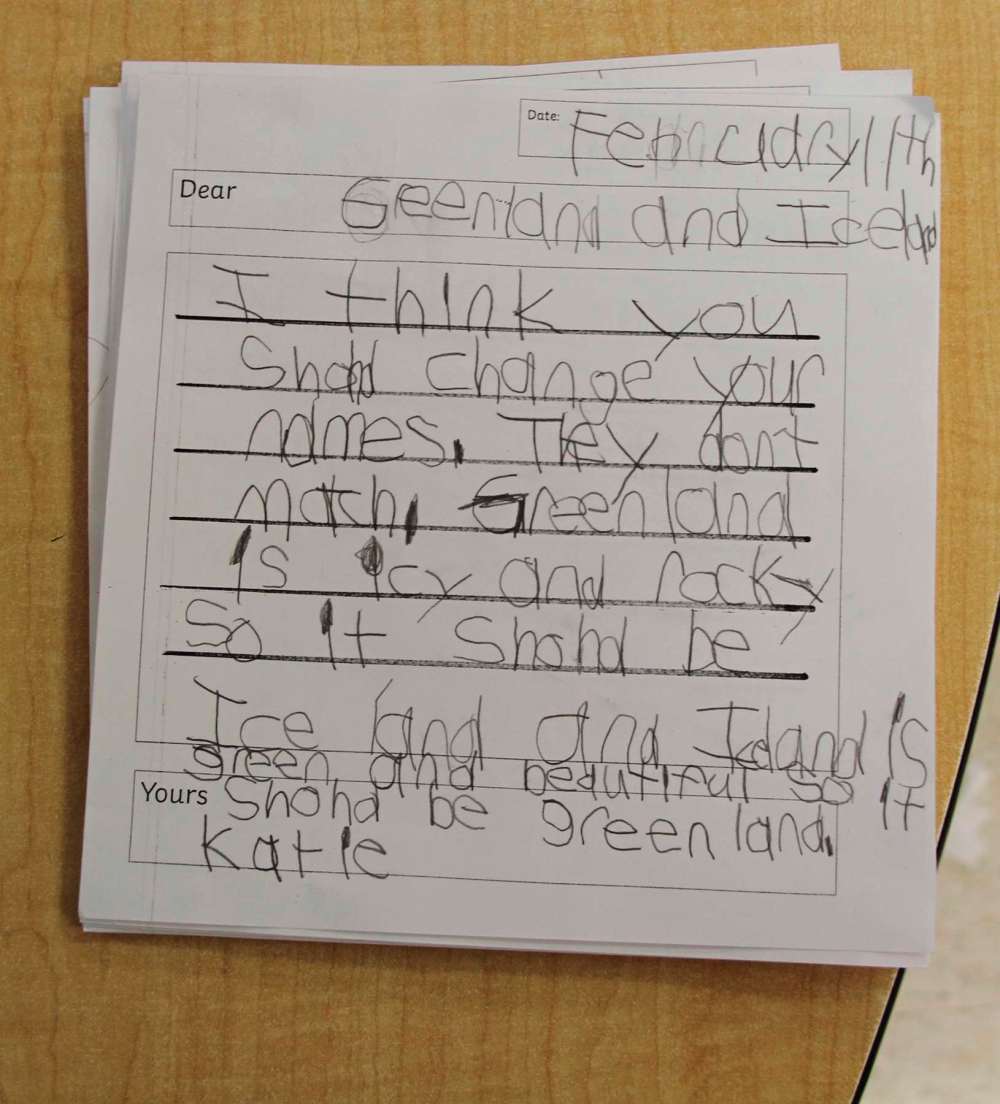 Date: February 11th
Dear Geenland and Iceland
I think you
Shohd change your
names. They dont
match, Greenland
is icy and rocky
So it Shohd be
Ice land and Iceland is
green and beautiful so it
Yours Shohd be green land.
Katie